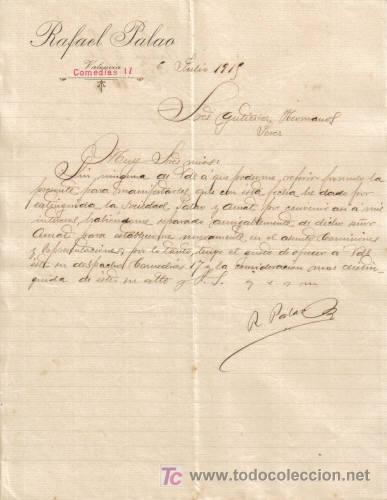 Rafael Palao
Valencia
Comedias 17
6 Julio 1915
Sres Gutierrez Hermanos
Jerez
Muy Sres mios:
Sin ninguna de Vds a que poderme referir formulo la
presente para manifestarles que con esta fecha he dado por
extinguida la Sociedad Palao y Amat por convenir asi a mis
intereses, habiendome separado amigablemente de dicho señor
Amat para establecerme nuevamente en el asunto Comisiones
y Representaciones; por lo tanto, tengo el gusto de ofrecer a Vds
su despacho Comedias 17 y la consideracion mas distin
guida de este su atto y S. S.
q e s m
R Palao
TC www.todocoleccion.net